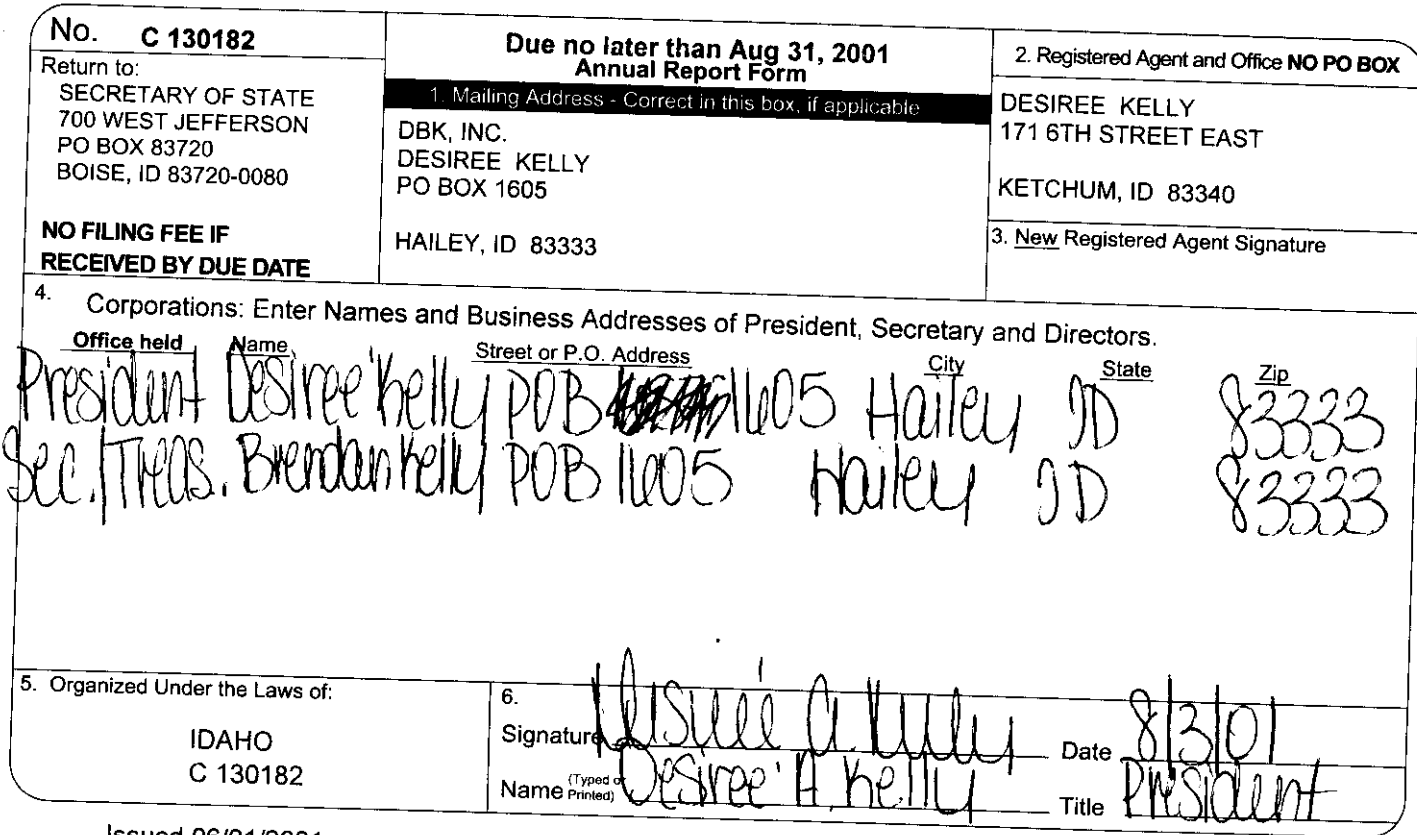 No. C 130182
Return to:
SECRETARY OF STATE
700 WEST JEFFERSON
PO BOX 83720
BOISE, ID 83720-0080
NO FILING FEE IF
RECEIVED BY DUE DATE
Due no later than Aug 31, 2001
Annual Report Form
1. Mailing Address - Correct in this box, if applicable
DBK, INC.
DESIREE KELLY
PO BOX 1605
HAILEY, ID 83333
2. Registered Agent and Office NO PO BOX
DESIREE KELLY
171 6TH STREET EAST
KETCHUM, ID 83340
3. New Registered Agent Signature
4. Corporations: Enter Names and Business Addresses of President, Secretary and Directors.
Office held Name Street or P.O. Address City State Zip
President Desiree' Kelly POB 1605 Hailey ID 83333
Sec./Treas. Brendan Kelly POB 1605 Hailey ID 83333
5. Organized Under the Laws of:
IDAHO
C 130182
6.
Signature Desireé A. Kelly Date 8/3/01
Name (Typed or Printed) Desiree' A. Kelly Title President